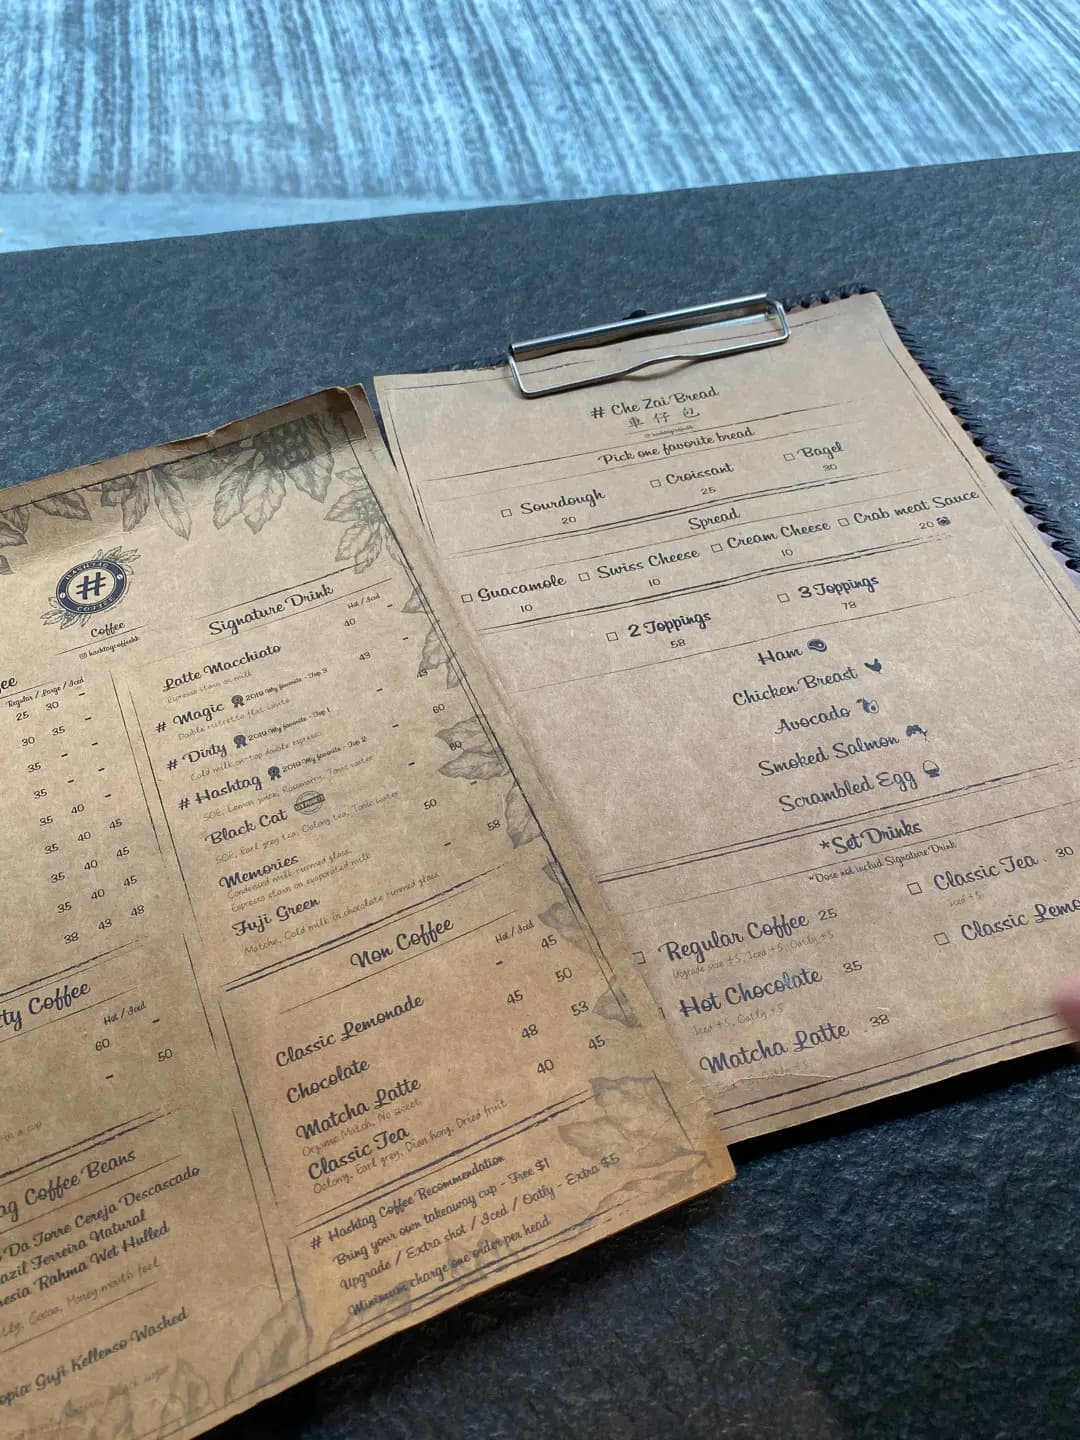 HASHTAG
#
COFFEE
Coffee
hashtagcoffeehk
Regular / Large / Iced
25 30 -
30 35 -
35 - -
35 - -
35 40 45
35 40 45
35 40 45
38 43 48
Coffee
Hot / Iced
60 -
- 50
Coffee Beans
Da Torre Cereja Descascado
Ferreira Natural
Rahma Wet Hulled
Cocoa, Honey mouth feel
Guji Kellenso Washed
Signature Drink
Hot / Iced
Latte Macchiato 40 -
Espresso stain on milk
# Magic 2019 My favorite - Top 3 43 -
Double ristretto flat white
# Dirty 2019 My favorite - Top 1 - 43
Cold milk on-top double espresso
# Hashtag 2019 My favorite - Top 2 - 60
SOE, Lemon juice, Rosemary, Tonic water
Black Cat - 60
SOE, Earl grey tea, Oolong tea, Tonic water
Memories 50 -
Condensed milk rimmed glass,
Espresso stain on evaporated milk
Fuji Green - 58
Matcha, Cold milk in chocolate rimmed glass
Non Coffee
Hot / Iced
Classic Lemonade - 45
Chocolate 45 50
Matcha Latte 48 53
Organic Match, No sweet
Classic Tea 40 45
Oolong, Earl grey, Dian hong, Dried fruit
# Hashtag Coffee Recommendation
Bring your own takeaway cup - Free $1
Upgrade / Extra shot / Iced / Oatly - Extra $5
Minimum charge one order per head
# Che Zai Bread
車仔包
hashtagcoffeehk
Pick one favorite bread
□ Sourdough □ Croissant □ Bagel
20 25 30
Spread
□ Guacamole □ Swiss Cheese □ Cream Cheese □ Crab meat Sauce
10 10 10 20
□ 2 Toppings □ 3 Toppings
58 78
Ham
Chicken Breast
Avocado
Smoked Salmon
Scrambled Egg
*Set Drinks
*Dose not includ Signature Drink
□ Regular Coffee 25
Upgrade size +5, Iced +5, Oatly +5
□ Classic Tea 30
Iced +5
Hot Chocolate 35
Iced +5, Oatly +5
□ Classic
Matcha Latte 38